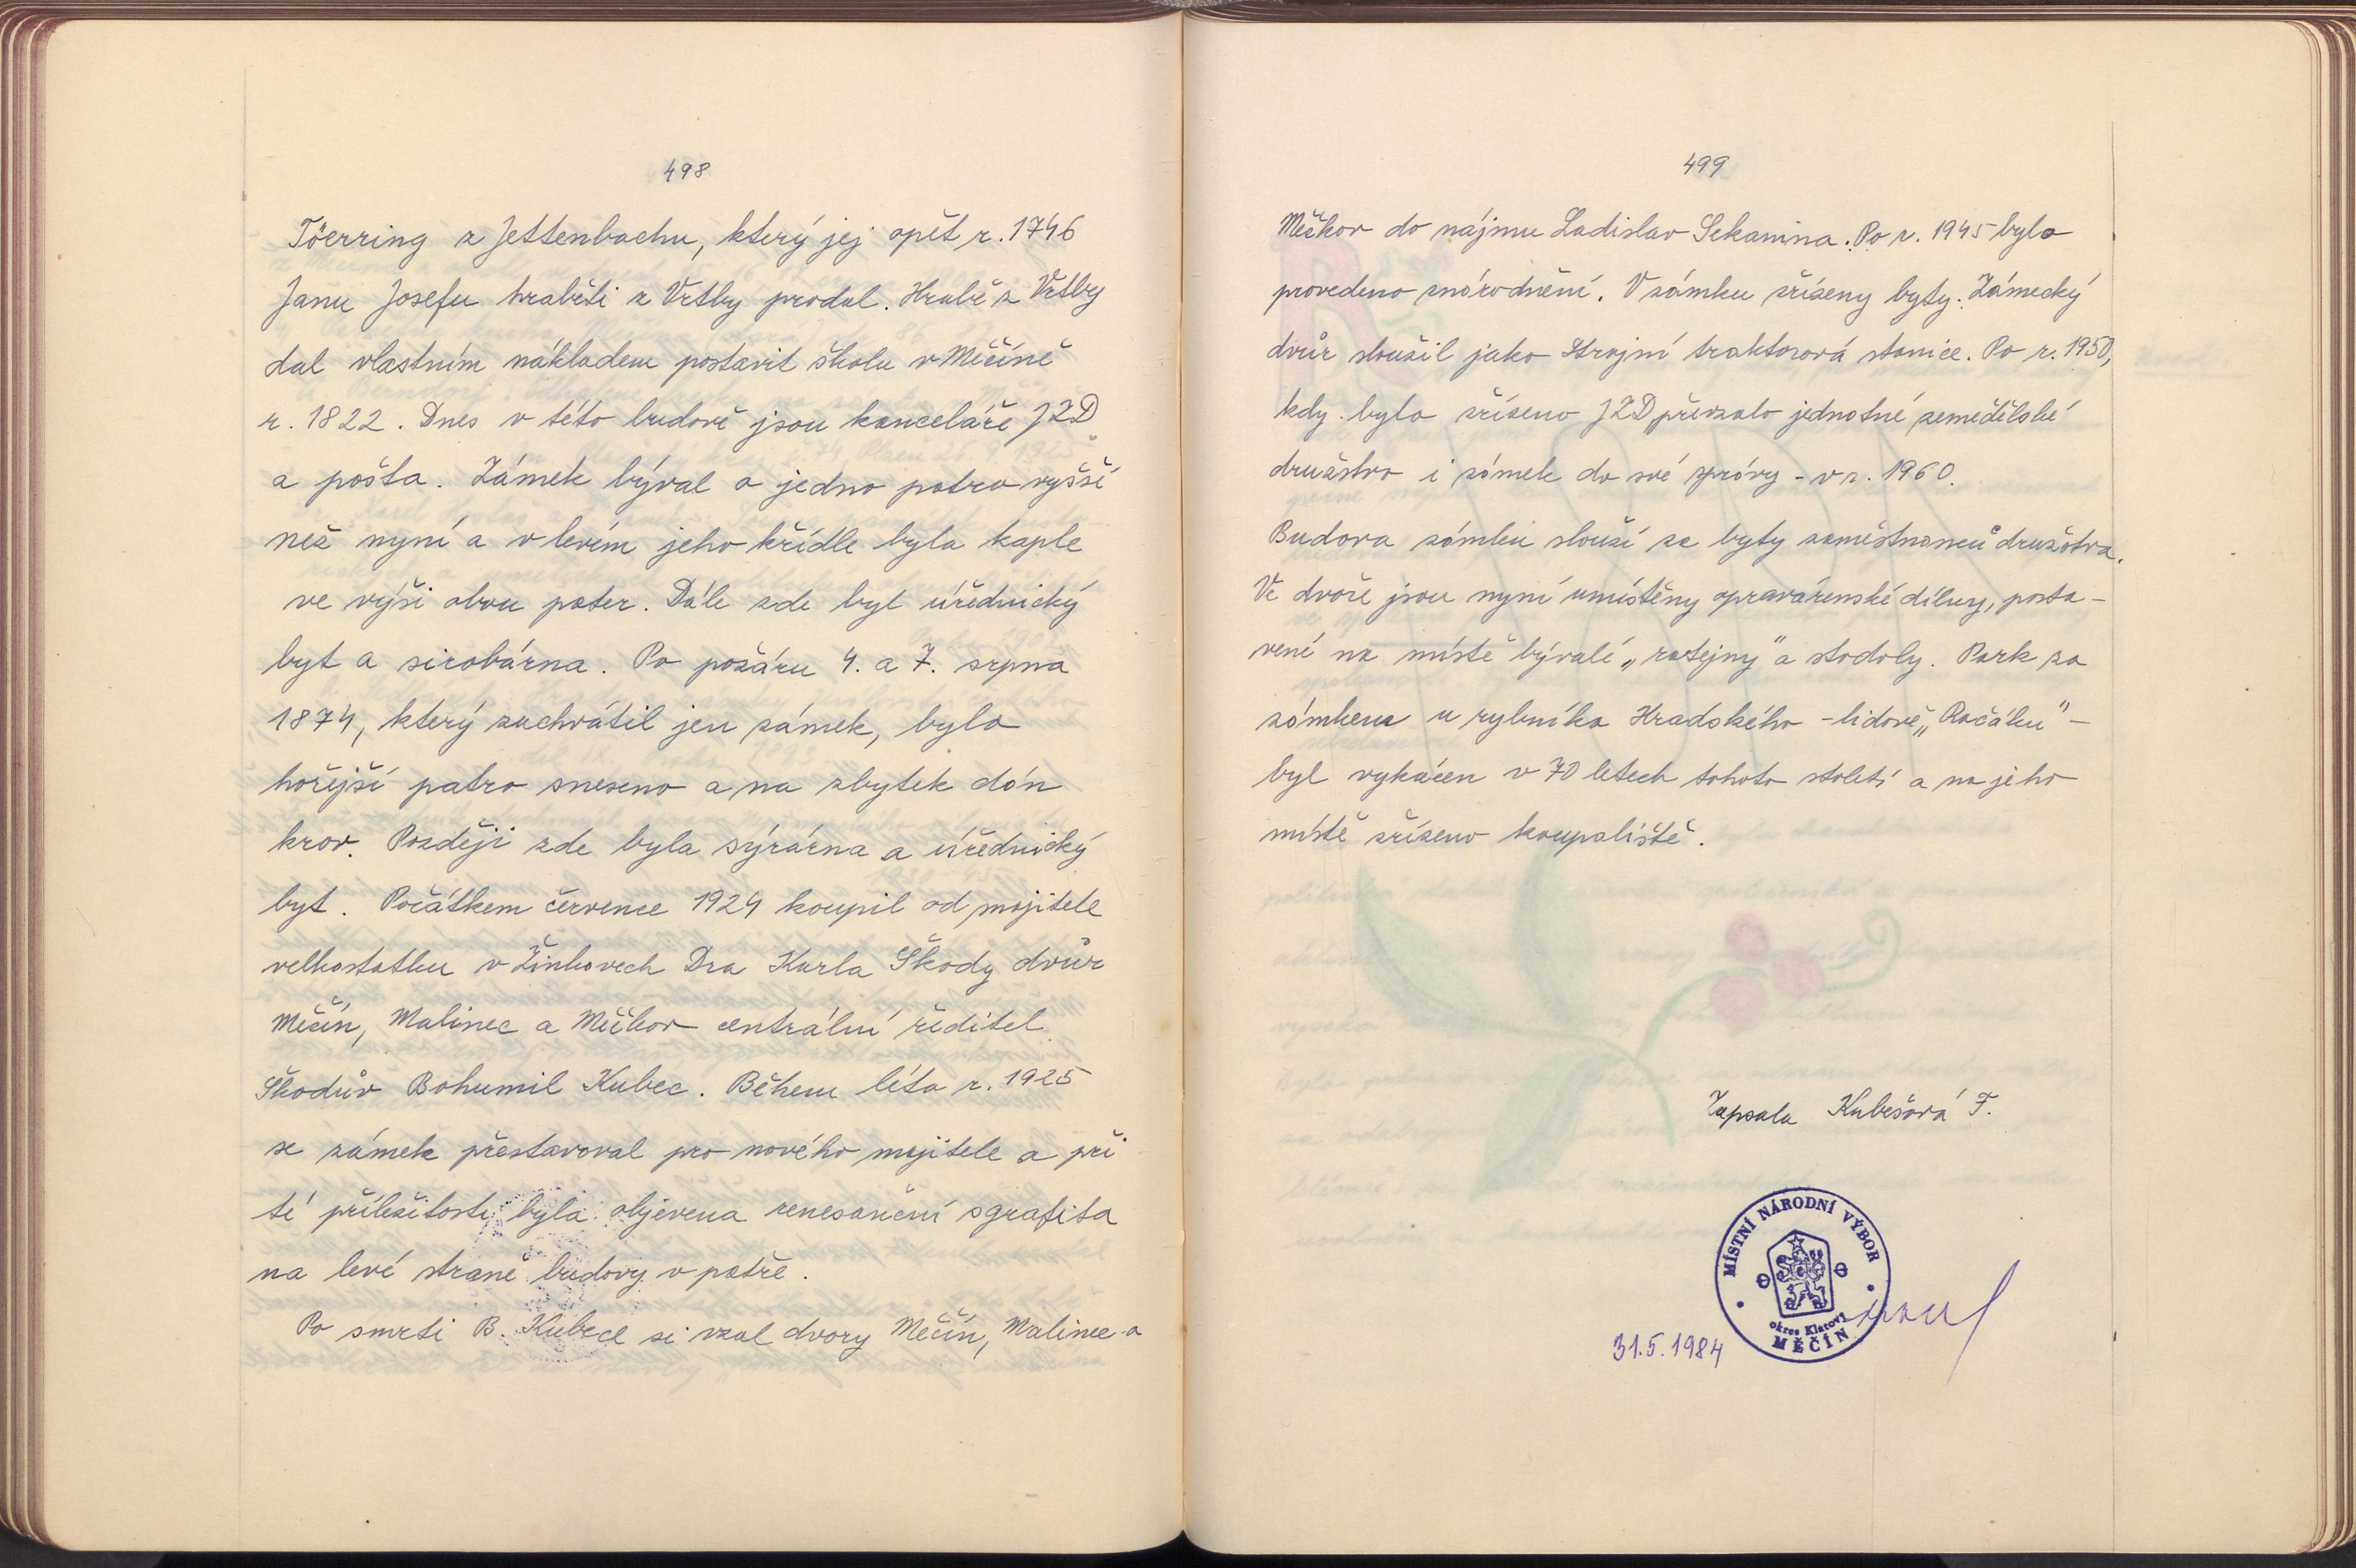 498
Töerring z Jettenbachu, který jej opět r. 1746
Janu Josefu hraběti z Vrtby prodal. Hrabě z Vrtby
dal vlastním nákladem postavit školu v Měčíně
r. 1822. Dnes v této budově jsou kanceláře JZD
a pošta. Zámek býval o jedno patro vyšší
než nyní a v levém jeho křídle byla kaple
ve výši obou pater. Dále zde byl úřednický
byt a sirobárna. Po požáru 4. a 7. srpna
1874, který zachvátil jen zámek, bylo
hořejší patro sneseno a na zbytek dán
krov. Později zde byla sýrárna a úřednický
byt. Počátkem července 1924 koupil od majitele
velkostatku v Žinkovech Dra Karla Škody dvůr
Měčín, Malinec a Měčkov centrální ředitel
Škodův Bohumil Kubec. Během léta r. 1925
se zámek přestavoval pro nového majitele a při
té příležitosti byla objevena renesanční sgrafita
na levé straně budovy v patře.
Po smrti B. Kubece si vzal dvory Měčín, Malinec a
499
Měčkov do nájmu Ladislav Sekanina. Po r. 1945 bylo
provedeno znárodnění. V zámku zřízeny byty. Zámecký
dvůr sloužil jako Strojní traktorová stanice. Po r. 1950,
kdy bylo zřízeno JZD převzalo jednotné zemědělské
družstvo i zámek do své správy - v r. 1960.
Budova zámku slouží za byty zaměstnanců družstva.
Ve dvoře jsou nyní umístěny opravárenské dílny, posta-
vené na místě bývalé „ratejny" a stodoly. Park za
zámkem u rybníka Hradského - lidově „Račáku" -
byl vykácen v 70 letech tohoto století a na jeho
místě zřízeno koupaliště.
Zapsala Kubešová F.
MÍSTNÍ NÁRODNÍ VÝBOR
okres Klatovy
MĚČÍN
31.5.1984